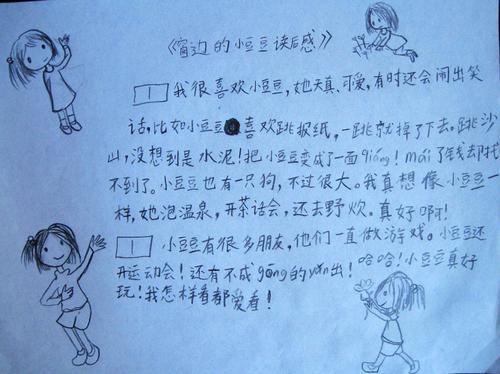 《窗边的小豆豆读后感》
我很喜欢小豆豆,她天真、可爱,有时还会闹出笑
话,比如小豆豆喜欢跳报纸,一跳就掉了下去。跳沙
山,没想到是水泥!把小豆豆变成了一面qiáng!mái了钱却找
不到了。小豆豆也有一只狗,不过很大。我真想像小豆豆一
样,她泡温泉,开茶话会,还去野炊。真好啊!
小豆豆有很多朋友,他们一直做游戏。小豆豆还
开运动会!还有不成gōng的yǎn出!哈哈!小豆豆真好
玩!我怎样看都爱看!